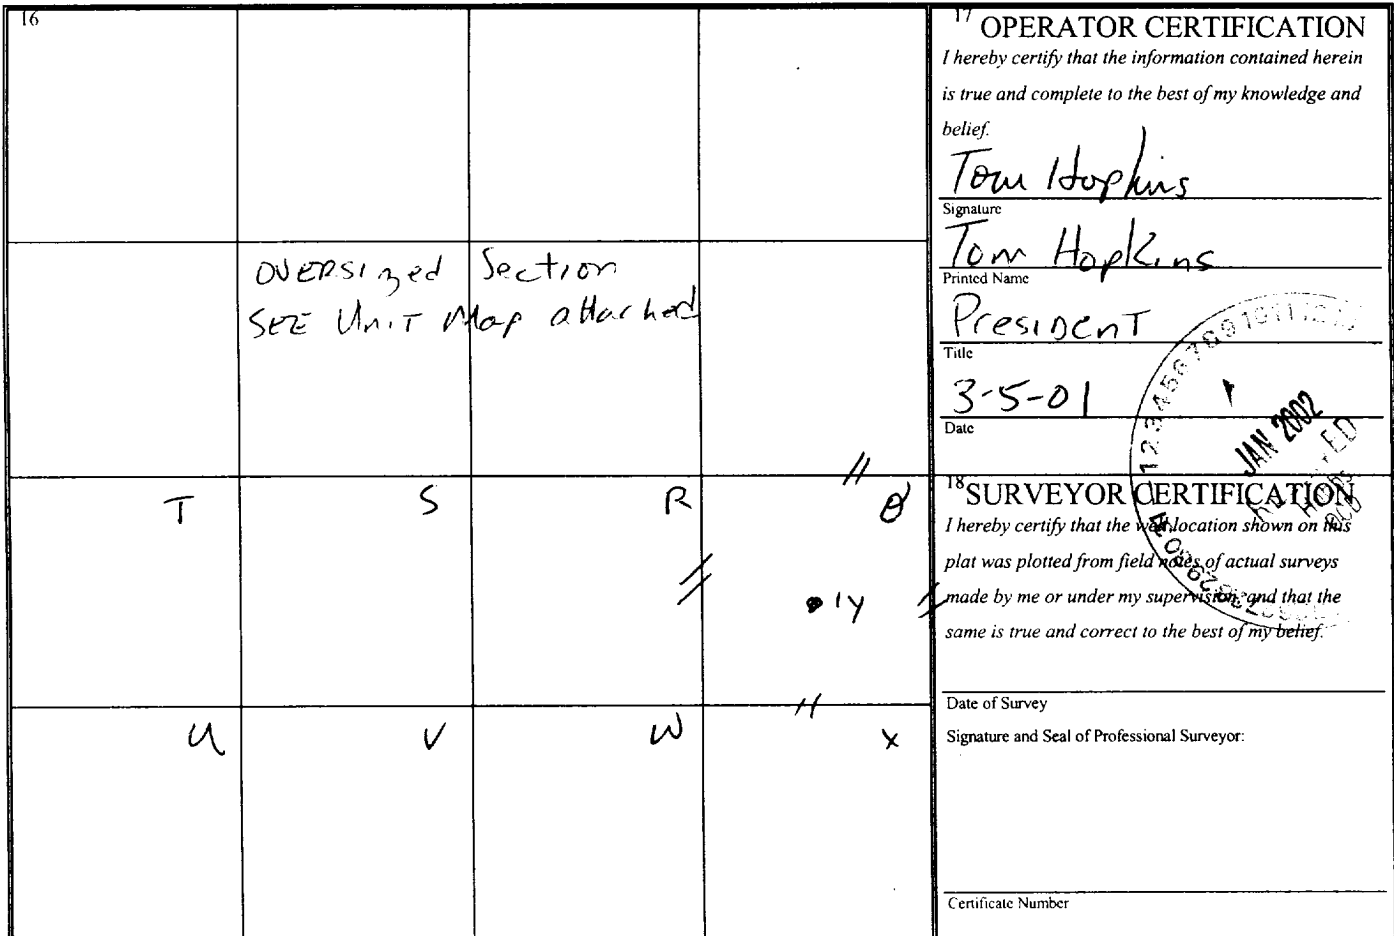 16
OVERSIzed Section
SEE UniT Map attached
T
S
R
U
V
W
X
1Y
17
OPERATOR CERTIFICATION
I hereby certify that the information contained herein
is true and complete to the best of my knowledge and
belief.
Tom Hopkins
Signature
Tom Hopkins
Printed Name
PresIDenT
Title
3-5-01
Date
JAN 2002
Hobbs
OCD
18
SURVEYOR CERTIFICATION
I hereby certify that the well location shown on this
plat was plotted from field notes of actual surveys
made by me or under my supervision, and that the
same is true and correct to the best of my belief.
Date of Survey
Signature and Seal of Professional Surveyor:
Certificate Number